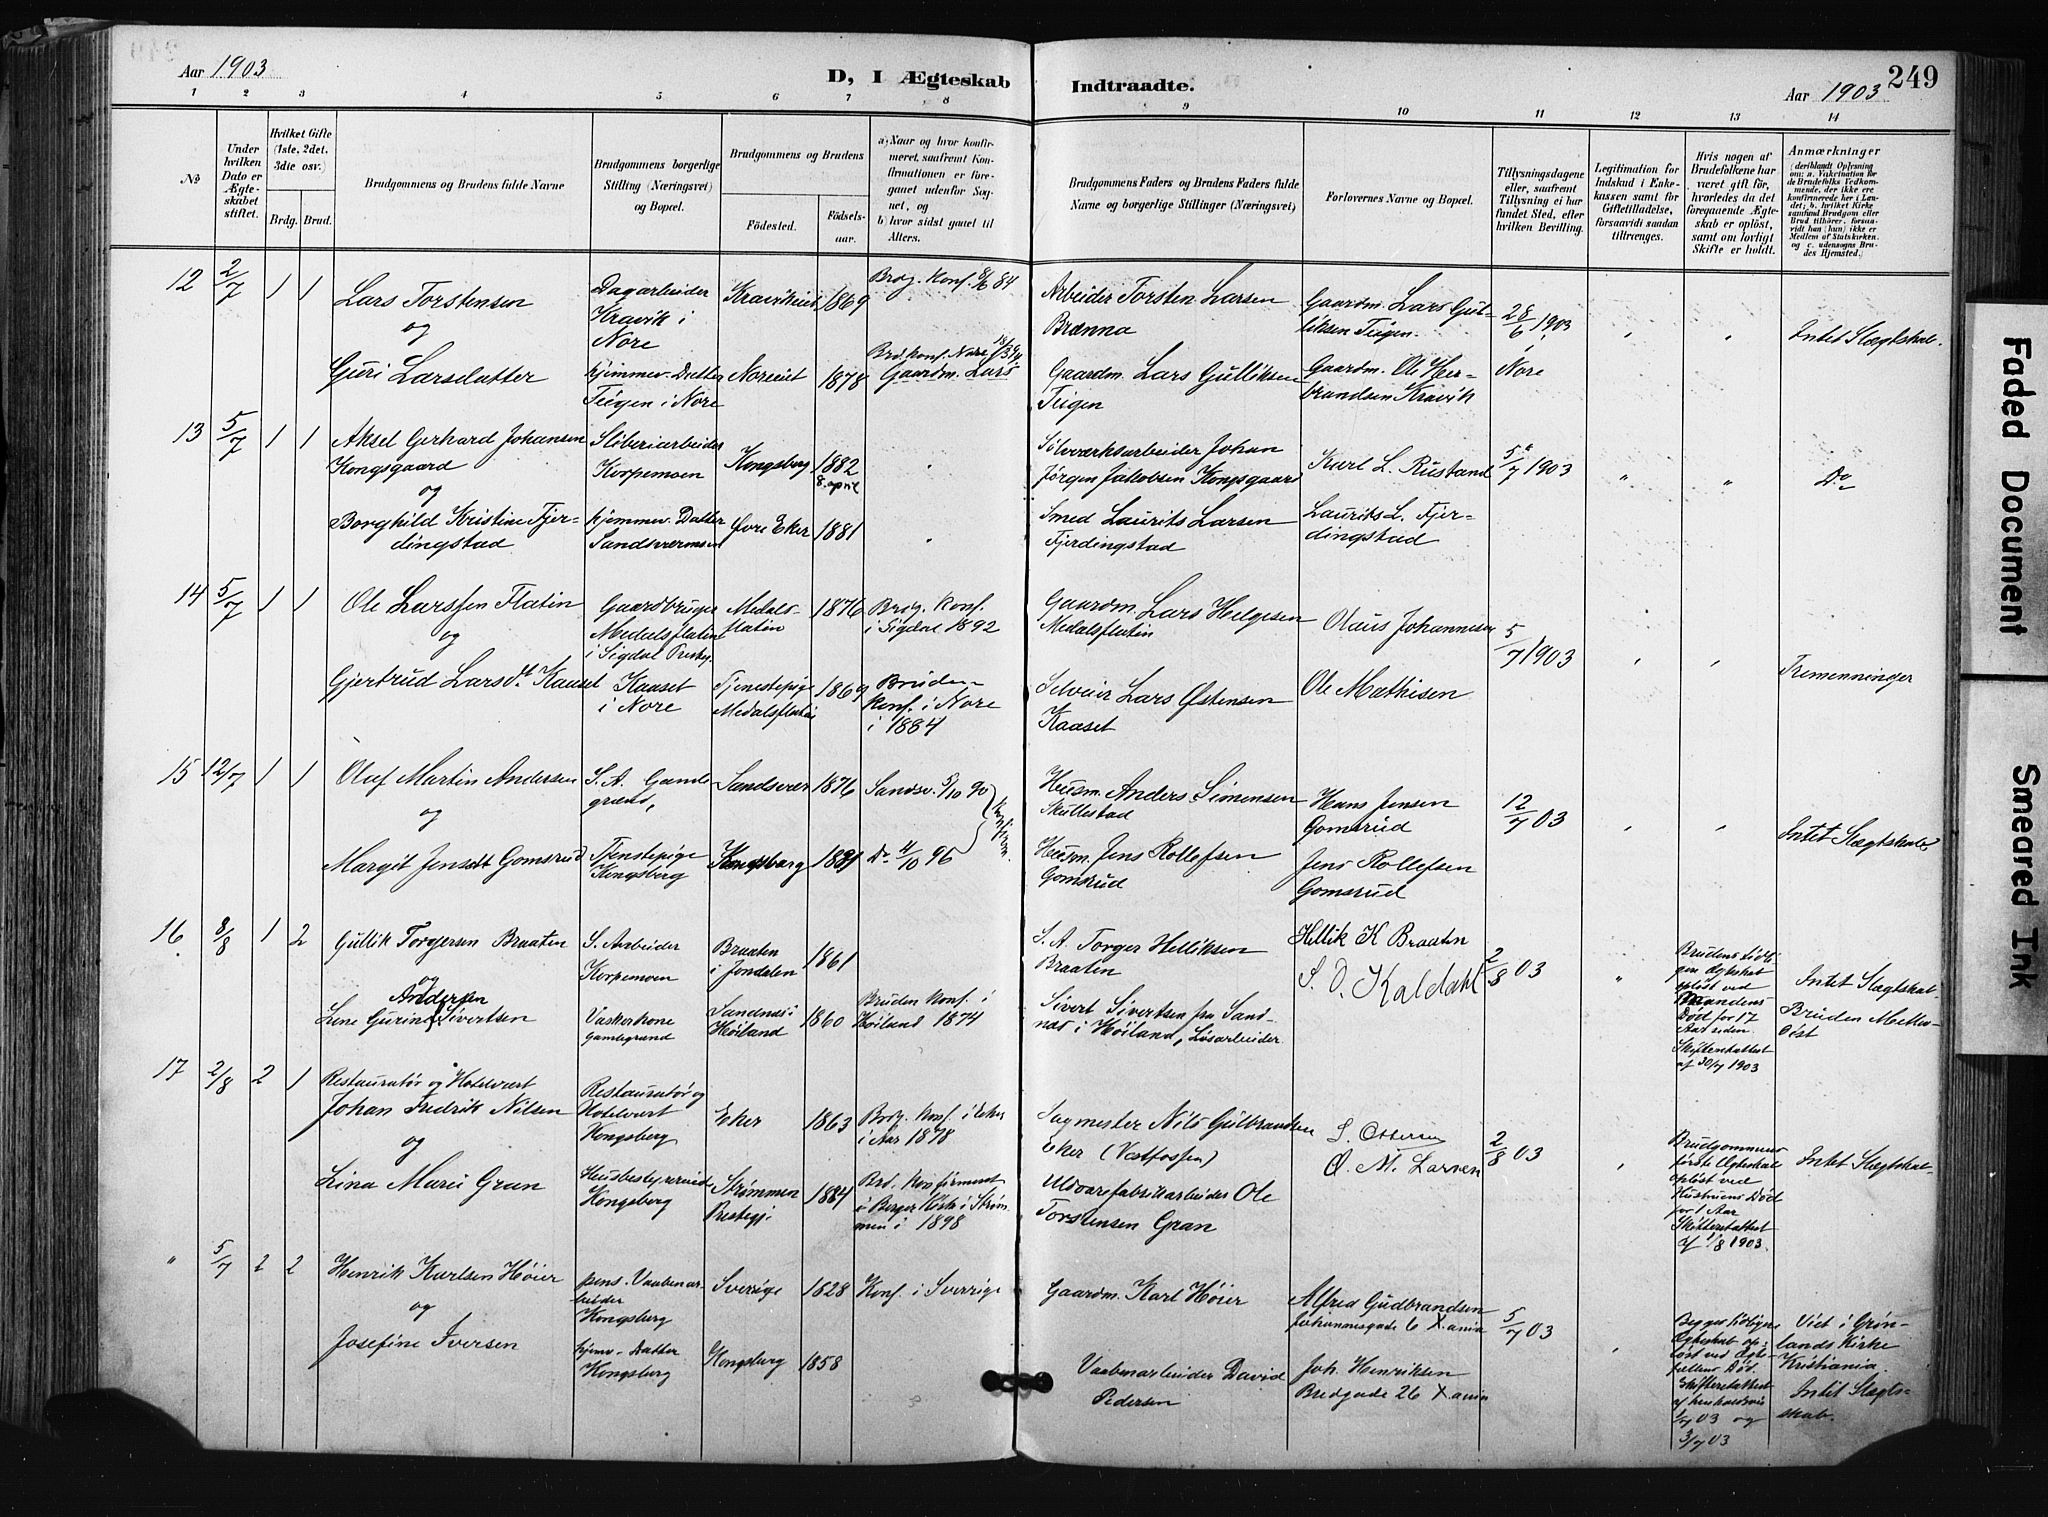 Aar 1903
D, I Ægteskab
Indtraadte.
Aar 1903
249
1 2 3 4 5 6 7 8 9 10 11 12 13 14
No
Under hvilken Dato er Ægteskabet stiftet.
Hvilket Gifte (1ste, 2det, 3die osv.)
Brdg. Brud.
Brudgommens og Brudens fulde Navne
Brudgommens borgerlige Stilling (Næringsvei) og Bopæl.
Brudgommens og Brudens
Födested. Födselsaar.
a) Naar og hvor konfirmeret, saafremt Konfirmationen er foregaaet udenfor Sognet, og
b) hvor sidst gaaet til Alters.
Brudgommens Faders og Brudens Faders fulde Navne og borgerlige Stillinger (Næringsvei)
Forlovernes Navne og Bopæl.
Tillysningsdagene eller, saafremt Tillysning ei har fundet Sted, efter hvilken Bevilling.
Legitimation for Indskud i Enkekassen samt for Giftetilladelse, forsaavidt saadan tiltrænges.
Hvis nogen af Brudefolkene har været gift för, hvorledes da det foregaaende Ægteskab er oplöst, samt om lovligt Skifte er holdt.
Anmærkninger
12 2/7 1 1
Lars Torstensen
og
Guri Larsdatter
Dagarbeider
Kravik i
Nore
hjemmev. Datter
Teigen i Nore
1869
1878
Brdg. Konf.
84
Brd. konf. Nore
Gaardm. Lars
Arbeider Torsten Larsen
Brænna
Gaardm. Lars Gulliksen
Teigen
Gaardm. Lars Gul-
liksen Teigen
Gaardm. Ole Her-
brandsen Kravik
28/6 1903
Nore
Intet Slægtskab.
13 5/7 1 1
Aksel Gerhard Johansen
Kongsgaard
og
Borghild Kristine Fjer-
dingstad
Sliberiarbeider
Korpemoen
hjemmev. Datter
Sandsværmoen
Kongsberg 1882
8. april
Øvre Eker 1881
Sølvværksarbeider Johan
Jørgen Jakobsen Kongsgaard
Smed Laurits Larsen
Fjerdingstad
Karl L. Rustand
Laurits L. Fjer-
dingstad
5/7 1903
Do
14 5/7 1 1
Ole Larssen Flatin
og
Gjertrud Larsdt. Kaaset
Gaardbruger
Medalsflatin
i Sigdal Prestegj.
Kaaset
i Nore
Medals-
flatin
1876
Tjenestepige
Medalsflatin
1869
Brdg. konf.
i Sigdal 1892
Bruden
konf. i Nore
i 1884
Gaardm. Lars Helgesen
Medalsflatin
Selveier Lars Østensen
Kaaset
Olaus Johannesen
Ole Mathisen
5/7 1903
Tremenninger
15 12/7 1 1
Oluf Martin Andersen
og
Margit Jensdt Gomsrud
S. A. Gamle-
grænd,
Tjenstepige
Kongsberg
Sandsvær 1876
Kongsberg 1881
Sandsv. 5/10 90
Do 4/10 96
Konfirm.
Husm. Anders Simensen
Skullestad
Husm. Jens Rollefsen
Gomsrud
Hans Jensen
Gomsrud
Jens Rollefsen
Gomsrud
12/7 03
Intet Slægtskab
16. 8/8 1 2
Gullik Torgersen Braaten
og
Andersen
Lene Gurine Sivertsen
S. Arbeider
Korpemoen
Vaskerkone
Gamlegrænd
Braaten
i Jondalen
1861
Sandnes i
Høiland
1860
Bruden konf. i
Høiland 1874
S. A. Torger Helliksen
Braaten
Sivert Sivertsen fra Sand-
nes i Høiland, Løsarbeider
Hellik K Braatn
S. O. Kaldahl
2/8 03
Brudens tidli-
gere Egteskab
opløst ved
Mandens
Død for 17
Aar siden.
Skifteattest
af 30/7 1903
Intet Slægtskab
Bruden Metho-
dist
17 2/8 2 1
Restauratør og Hotelvært
Johan Fredrik Nilsen
og
Lina Marie Gran
Restauratør og
Hotelvert
Kongsberg
Husbestyrerinde
Kongsberg
Eker 1863
Strømmen
Prestegj.
1884
Brdg. konf. i Eker
i Aar 1878
Brd. konfirmert
i Berger Kirke i Strøm-
men i 1898
Sagmester Nils Gulbrandsen
Eker (Vestfossen)
Uldvarefabrikarbeider Ole
Torstensen Gran
S. Ottersen
O. M. Larsen
2/8 03
Brudgommens
første Egteskab
opløst ved
Hustruens Død
for 1 Aar
Skifteattest
af 1/8 1903.
Intet Slægtskab
" 5/7 2 2
Henrik Karlsen Høier
og
Josefine Iversen
pens. Vaabenar-
beider
Kongsberg
hjemv. Datter
Kongsberg
Sverrige 1828
Kongsberg 1858
Konf. i Sverrige
Gaardm. Karl Høier
Vaabenarbeider David
Pedersen
Alfred Gudbrandsen
Johannesgade 6 X.ania
Joh. Henriksen
Bredgade 26 X.ania
5/7 03
Begges tidligere
Egteskab op-
løst ved Egte-
fællens Død
Skifteattest
03 og
3/7 03
Viet i Grøn-
lands Kirke
Kristiania.
Intet Slægt-
skab.
Faded Document
Smeared Ink